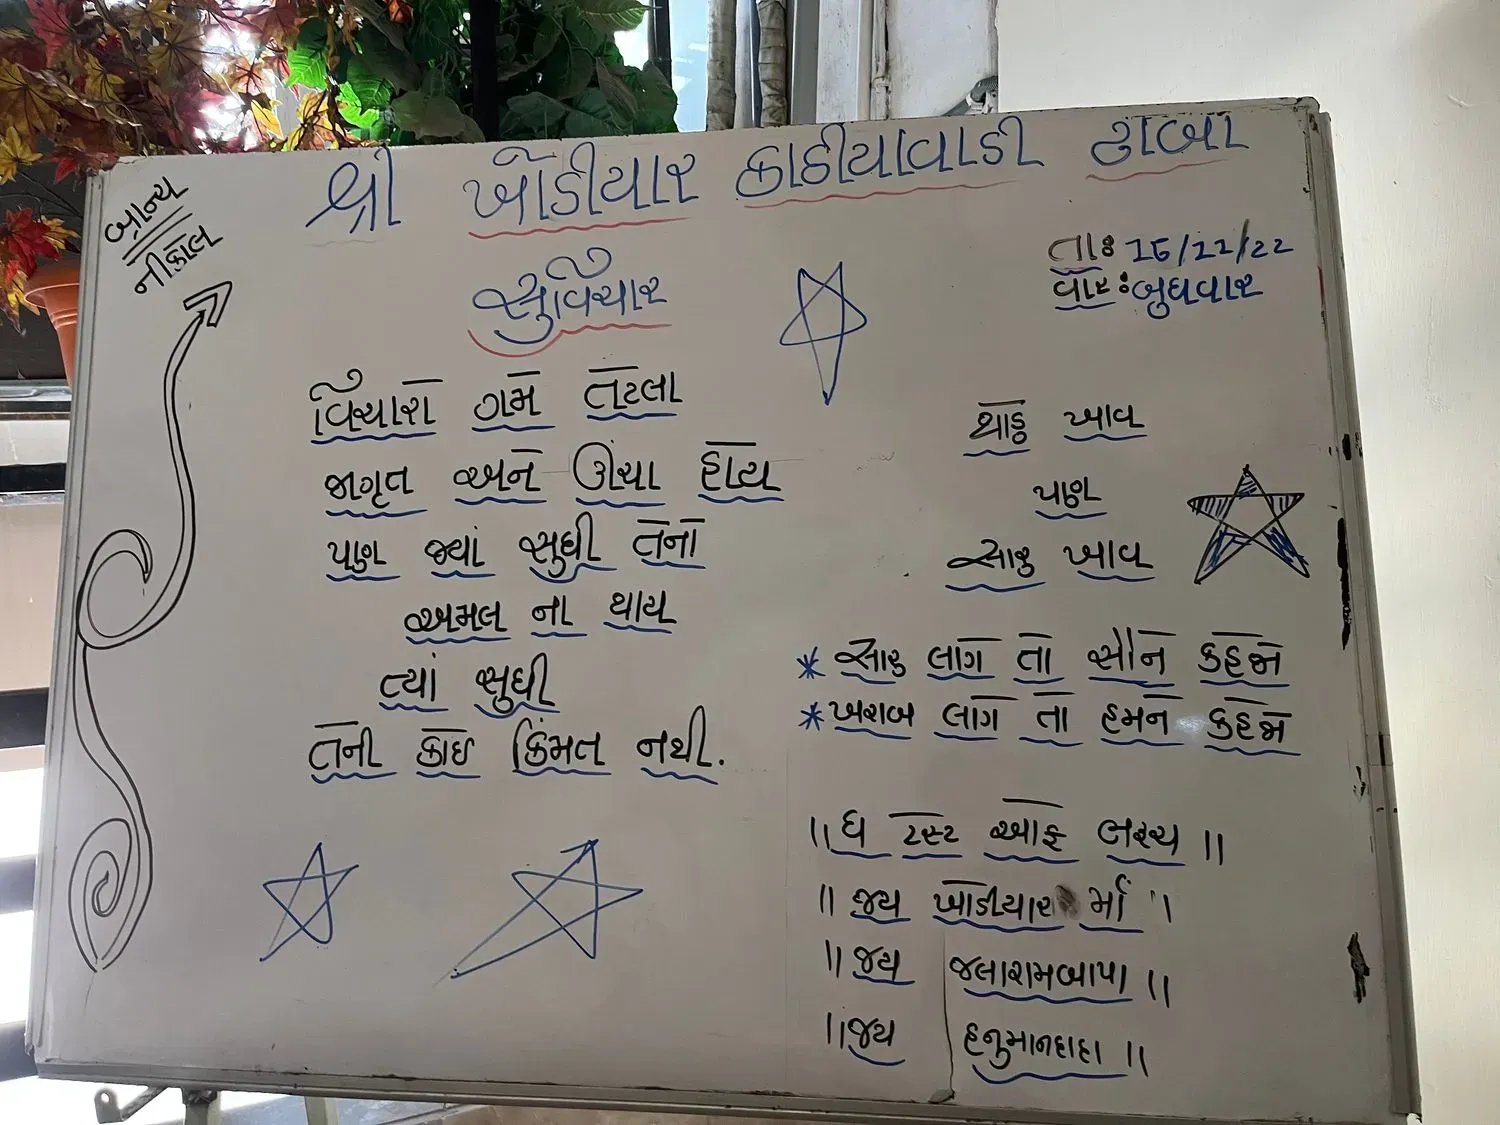 શ્રી ખોડીયાર કાઠીયાવાડી ઢાબા
બ્રાન્ચ
નીકાલ
તા: 16/11/22
વાર: બુધવાર
સુવિચાર
વિચારો ગમે તેટલા
જાગૃત અને ઊંચા હોય
પણ જ્યાં સુધી તેનો
અમલ ના થાય
ત્યાં સુધી
તેની કોઈ કિંમત નથી.
થોડુ ખાવ
પણ
સારુ ખાવ
* સારુ લાગે તો સૌને કહેજો
* ખરાબ લાગે તો હમને કહેજો
॥ ધ ટેસ્ટ ઓફ ભરુચ ॥
॥ જય ખોડીયાર માઁ ॥
॥ જય જલારામબાપા ॥
॥ જય હનુમાનદાદા ॥